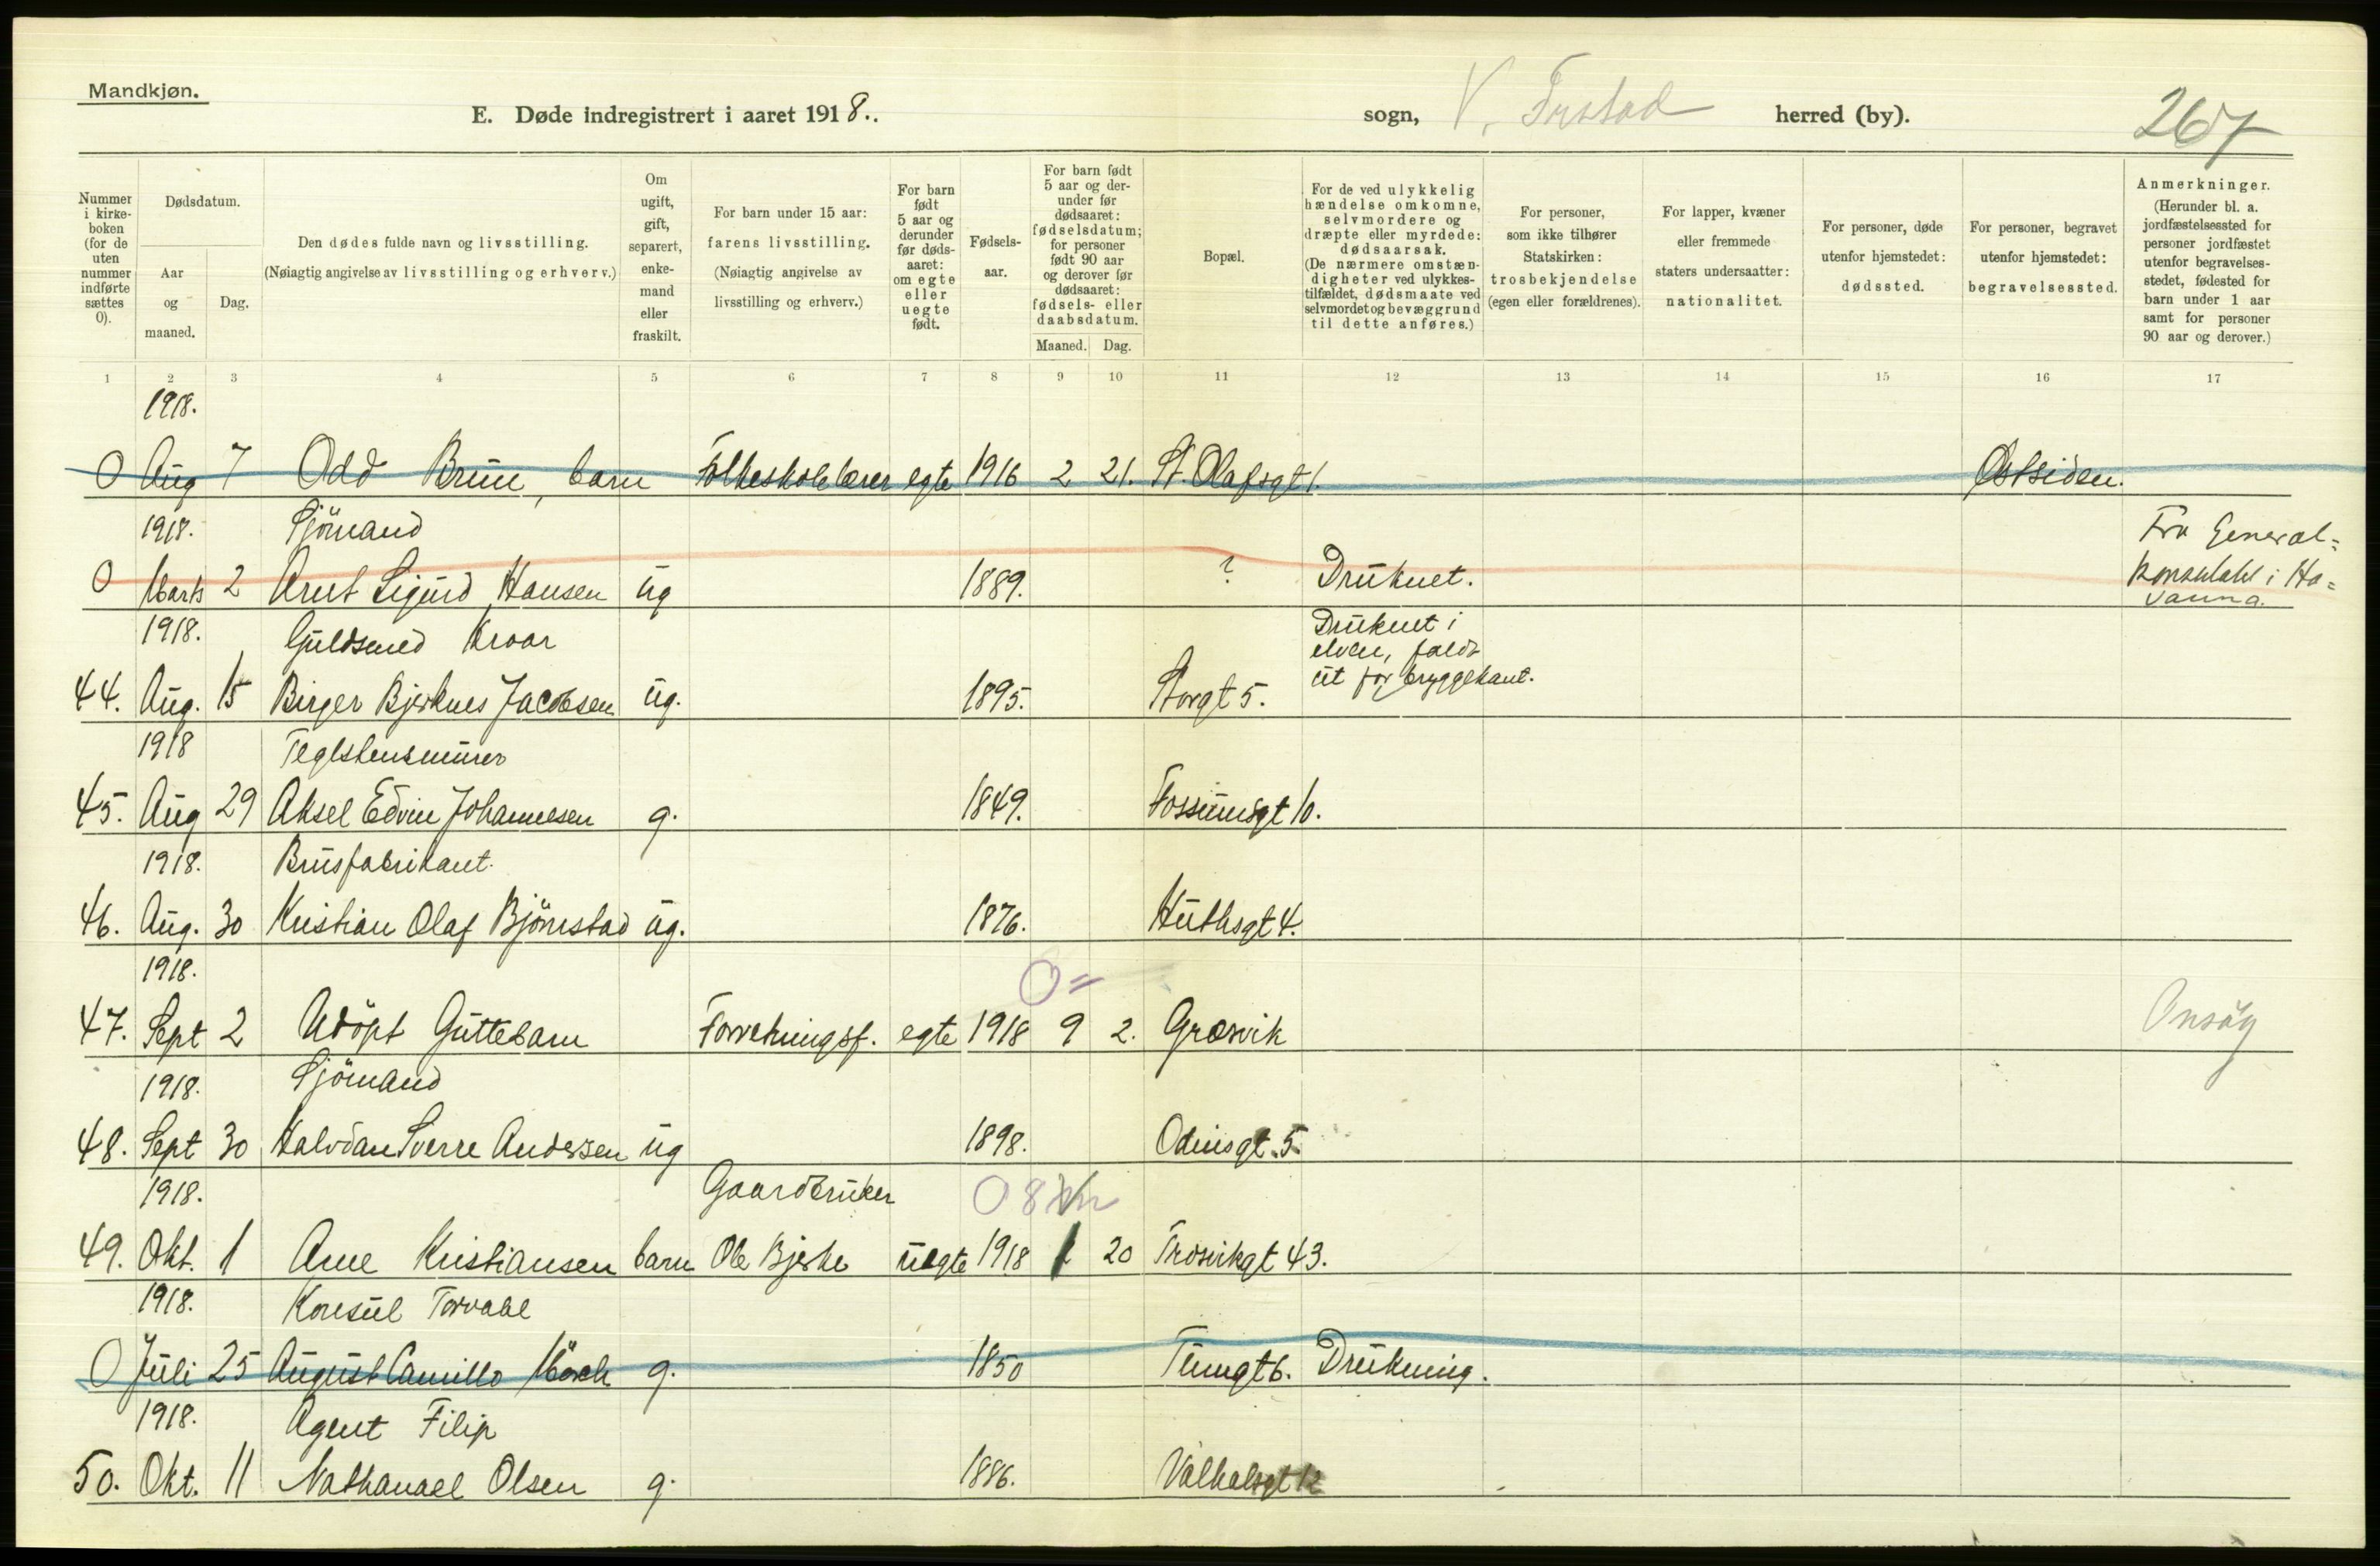 Mandkjøn.
E. Døde indregistrert i aaret 1918.. sogn, V. Frstad herred (by). 267
Nummer i kirke-boken (for de uten nummer indførte sættes 0).
Dødsdatum.
Aar og maaned.
Dag.
Den dødes fulde navn og livsstilling.
(Nøiagtig angivelse av livsstilling og erhverv.)
Om ugift, gift, separert, enke-mand eller fraskilt.
For barn under 15 aar: farens livsstilling.
(Nøiagtig angivelse av livsstilling og erhverv.)
For barn født 5 aar og derunder før døds-aaret: om egte eller uegte født.
Fødsels-aar.
For barn født 5 aar og der-under før dødsaaret: fødselsdatum; for personer født 90 aar og derover før dødsaaret: fødsels- eller daabsdatum.
Maaned. Dag.
Bopæl.
For de ved ulykkelig hændelse omkomne, selvmordere og dræpte eller myrdede: dødsaarsak.
(De nærmere omstæn-digheter ved ulykkes-tilfældet, dødsmaate ved selvmordet og bevæggrund til dette anføres.)
For personer, som ikke tilhører Statskirken: trosbekjendelse (egen eller forældrenes).
For lapper, kvæner eller fremmede staters undersaatter: nationalitet.
For personer, døde utenfor hjemstedet: dødssted.
For personer, begravet utenfor hjemstedet: begravelsessted.
Anmerkninger.
(Herunder bl. a. jordfæstelsessted for personer jordfæstet utenfor begravelses-stedet, fødested for barn under 1 aar samt for personer 90 aar og derover.)
1 2 3 4 5 6 7 8 9 10 11 12 13 14 15 16 17
1918.
0 Aug 7 Odd Brun, barn Folkeskolelærer egte 1916 2 21. St. Olafsgt 1. Østsiden.
1918. Sjömand Fra General=
0 Marts 2 Arnt Sigurd Hansen ug 1889. ? Druknet. konsulatet i Ha=
vanna.
1918. Guldsmed Kroar Druknet i
elven, faldt
44. Aug. 15 Birger Bjerknes Jacobsen ug. 1895. Storgt 5. ut for bryggekant.
1918 Teglstensmurer
45. Aug 29 Aksel Edvin Johannesen g. 1849. Fossumsgt 10.
1918. Brusfabrikant.
46. Aug. 30 Kristian Olaf Björnstad ug. 1876. Huthsgt 4.
1918. 0 =
47. Sept 2 Udöpt Guttebarn Forretningsf. egte 1918 9 2. Græsvik Onsöy
1918. Sjömand
48. Sept 30 Halvdan Sverre Andersen ug 1898. Odinsgt. 5.
1918. Gaardbruker 0 8
49. Okt. 1 Arne Kristiansen barn Ole Bjerke uegte 1918 20 Trosvikgt 43.
1918. Konsul Torvald
0 Juli 25 August Camillo Mörch g. 1850 Tungt 6. Drukning.
1918. Agent Filip
50. Okt. 11 Nathanael Olsen g. 1886. Valhalsgt 12